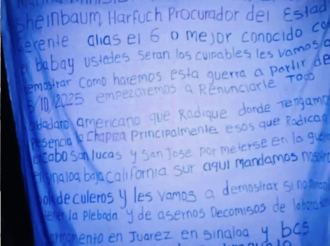 Sheinbaum, Harfuch Procurador del Estad
erente alias el 6 o mejor conocido co
el babay ustedes seran los culpables les vamos a
emostrar como haremos esta guerra a partir de
/10/2025 empezaremos a Renunciarle Todo
udadano americano que Radique donde Tengam
resencia la Chapiza principalmente esos que Radican
cabo San lucas y San Jose por meterse en la guerr
sinaloa baja California sur aqui mandamos nosotr
de culeros y les vamos a demostrar si no
la Plebada y de asernos Decomisos de labora
en Juarez en sinaloa y bcs